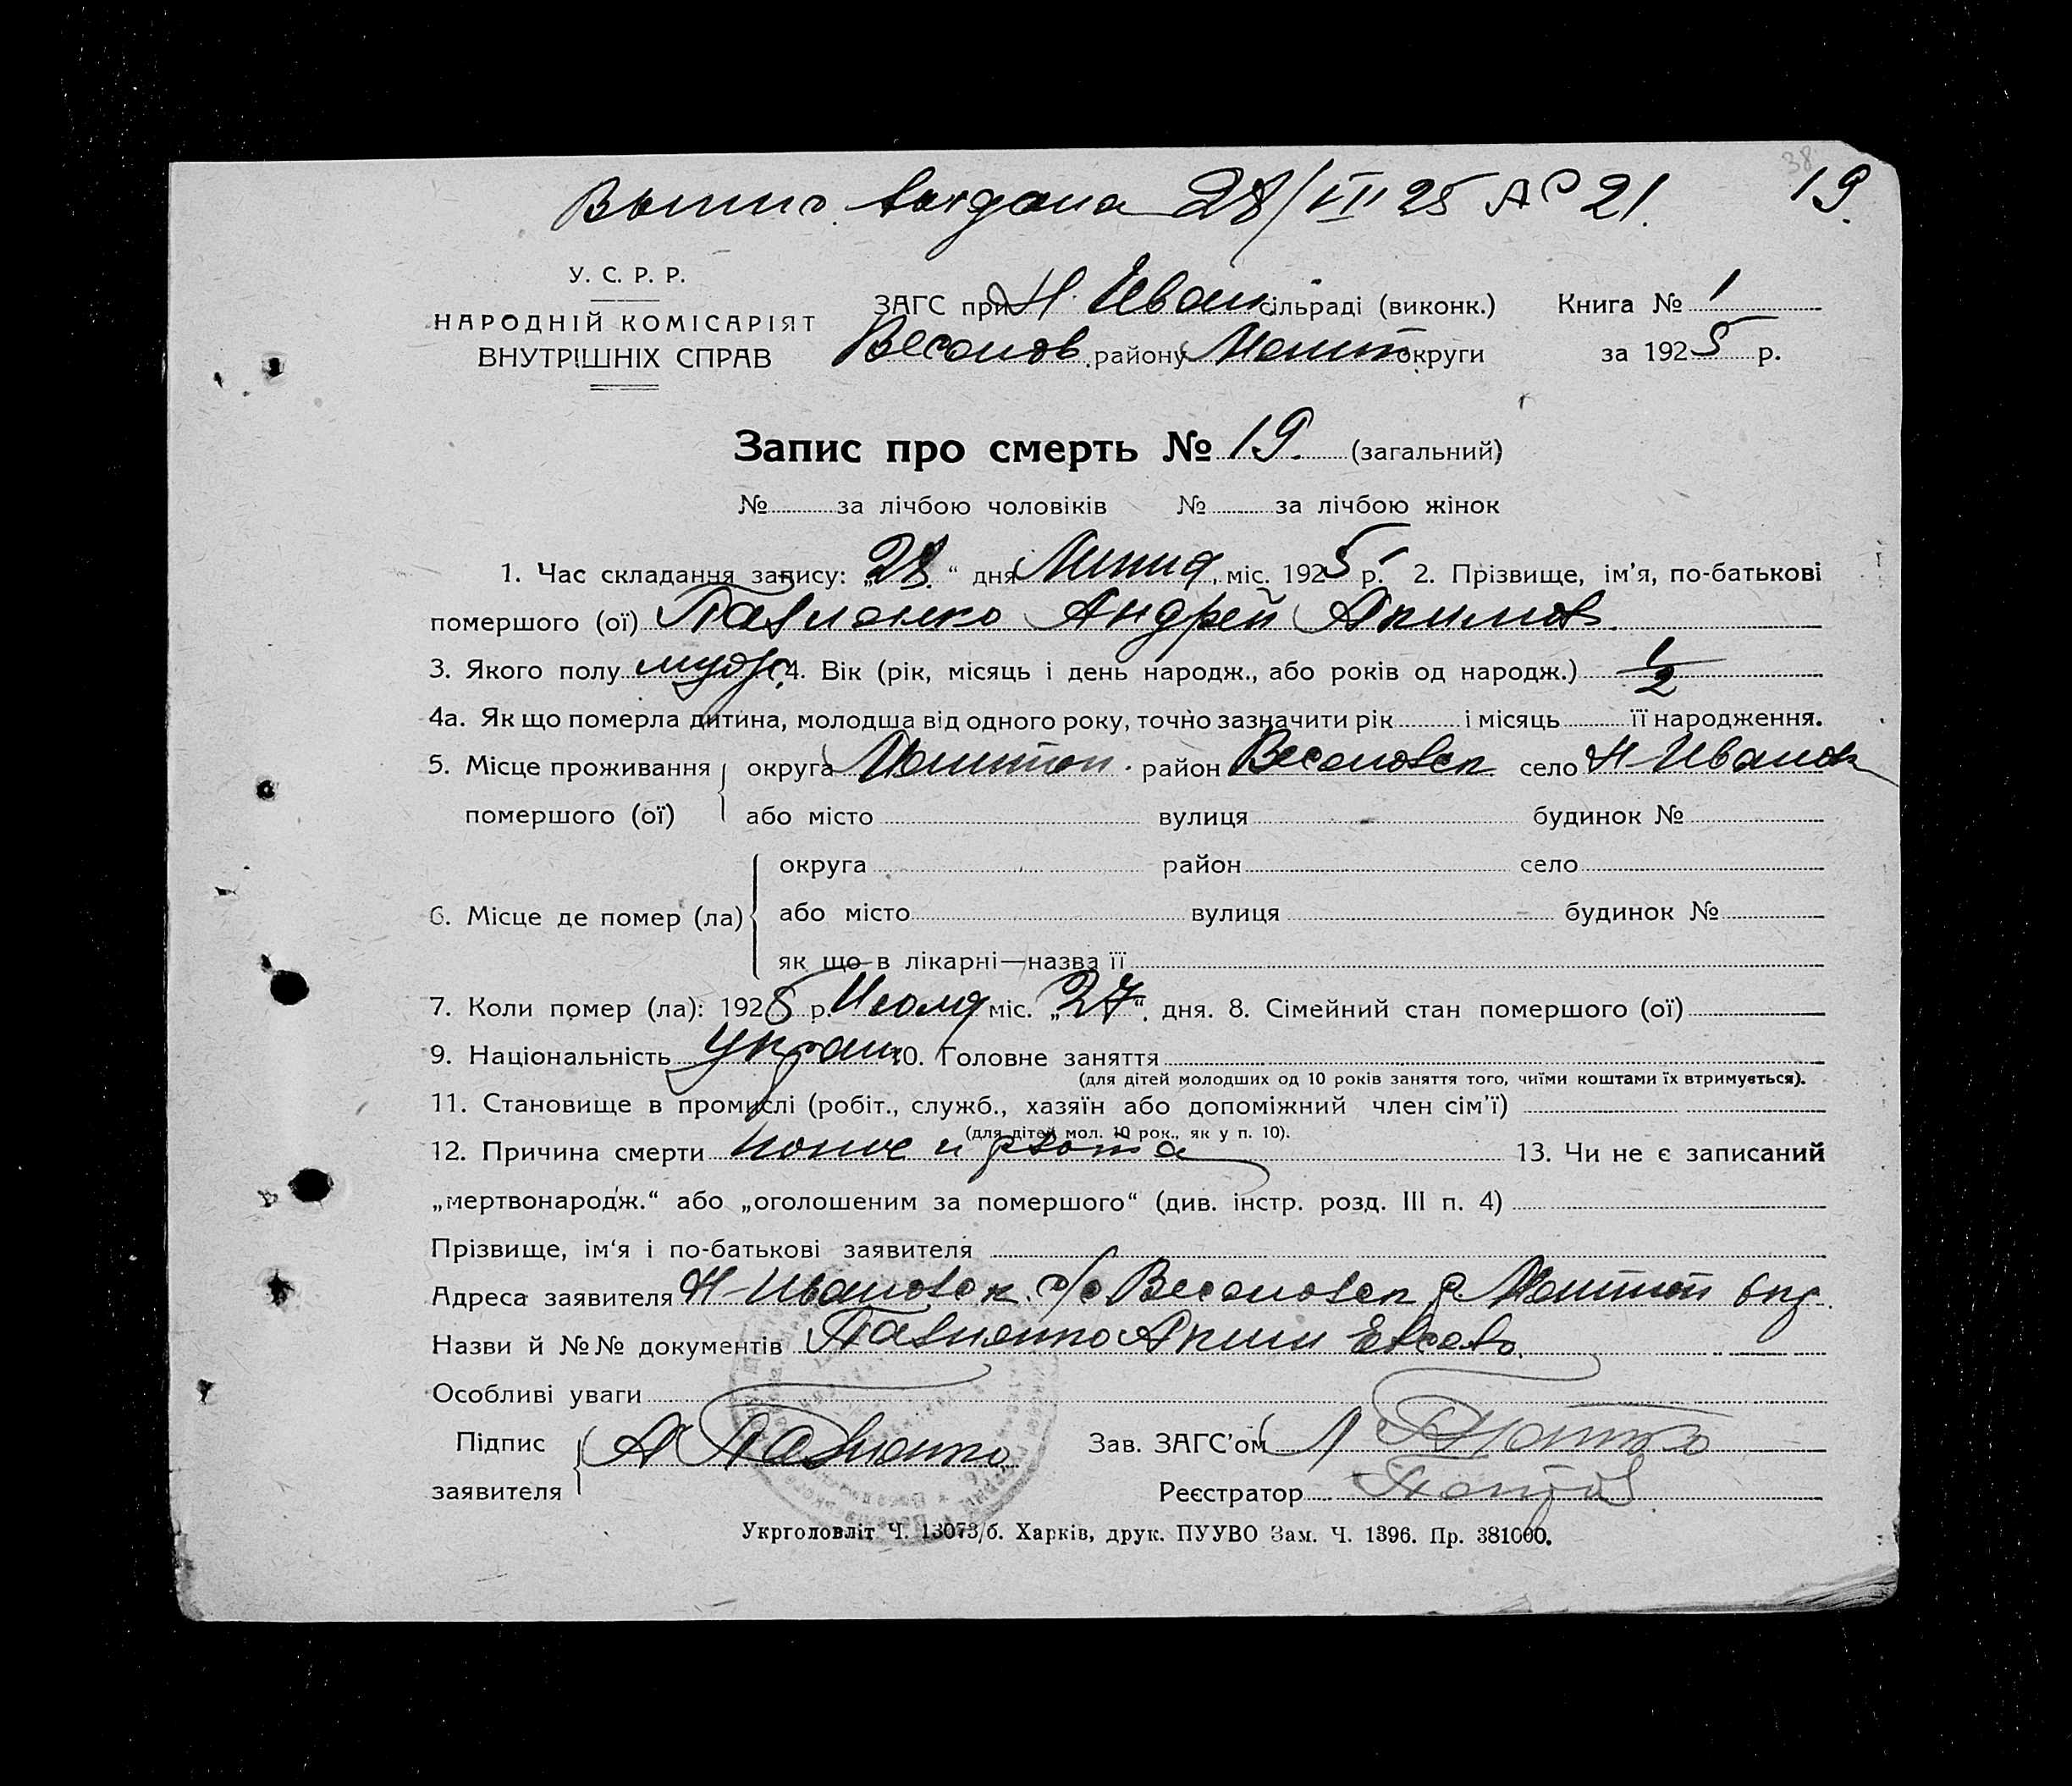 38
Выпис выдана 28/VII 25 № 21. 19.
У. С. Р. Р.
НАРОДНІЙ КОМІСАРІЯТ
ВНУТРІШНІХ СПРАВ
ЗАГС при Н Иван сільраді (виконк.) Книга № 1
району округи за 1925 р.
Запис про смерть № 19. (загальний)
№ за лічбою чоловіків № за лічбою жінок
1. Час складання запису: „28“ дня Липня міс. 1925 р. 2. Прізвище, ім’я, по-батькові
помершого (ої) Павленко Андрей Акимов
3. Якого полу мудж. 4. Вік (рік, місяць і день народж., або років од народж.) 1/2
4а. Як що померла дитина, молодша від одного року, точно зазначити рік і місяць її народження.
5. Місце проживання округа район село Н-Ивановк
помершого (ої) або місто вулиця будинок №
округа район село
6. Місце де помер (ла) або місто вулиця будинок №
як що в лікарні—назва її
7. Коли помер (ла): 1925 р. Июля міс. „27“ дня. 8. Сімейний стан помершого (ої)
9. Національність Украин 10. Головне заняття
(для дітей молодших од 10 років заняття того, чиїми коштами їх втримується).
11. Становище в промислі (робіт., служб., хазяїн або допоміжний член сім’ї)
(для дітей мол. 10 рок., як у п. 10).
12. Причина смерти понос и рвота 13. Чи не є записаний
„мертвонародж.“ або „оголошеним за помершого“ (див. інстр. розд. III п. 4)
Прізвище, ім‘я і по-батькові заявителя
Адреса заявителя Н-Ивановск. с/с р окр.
Назви й №№ документів Павленко Аким
Особливі уваги
Підпис А Павленко Зав. ЗАГС’ом
заявителя Реєстратор
Укрголовліт Ч. 13073/б. Харків, друк. ПУУВО Зам. Ч. 1396. Пр. 381000.